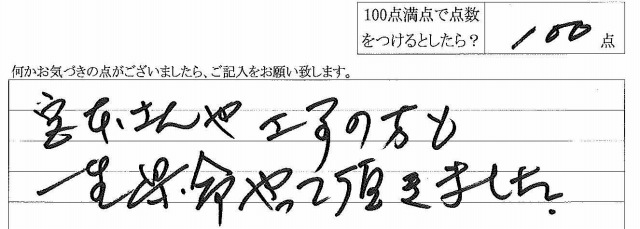 100点満点で点数
をつけるとしたら？ 100 点
何かお気づきの点がございましたら、ご記入をお願い致します。
宮本さんや工事の方も
一生懸命やって頂きました。